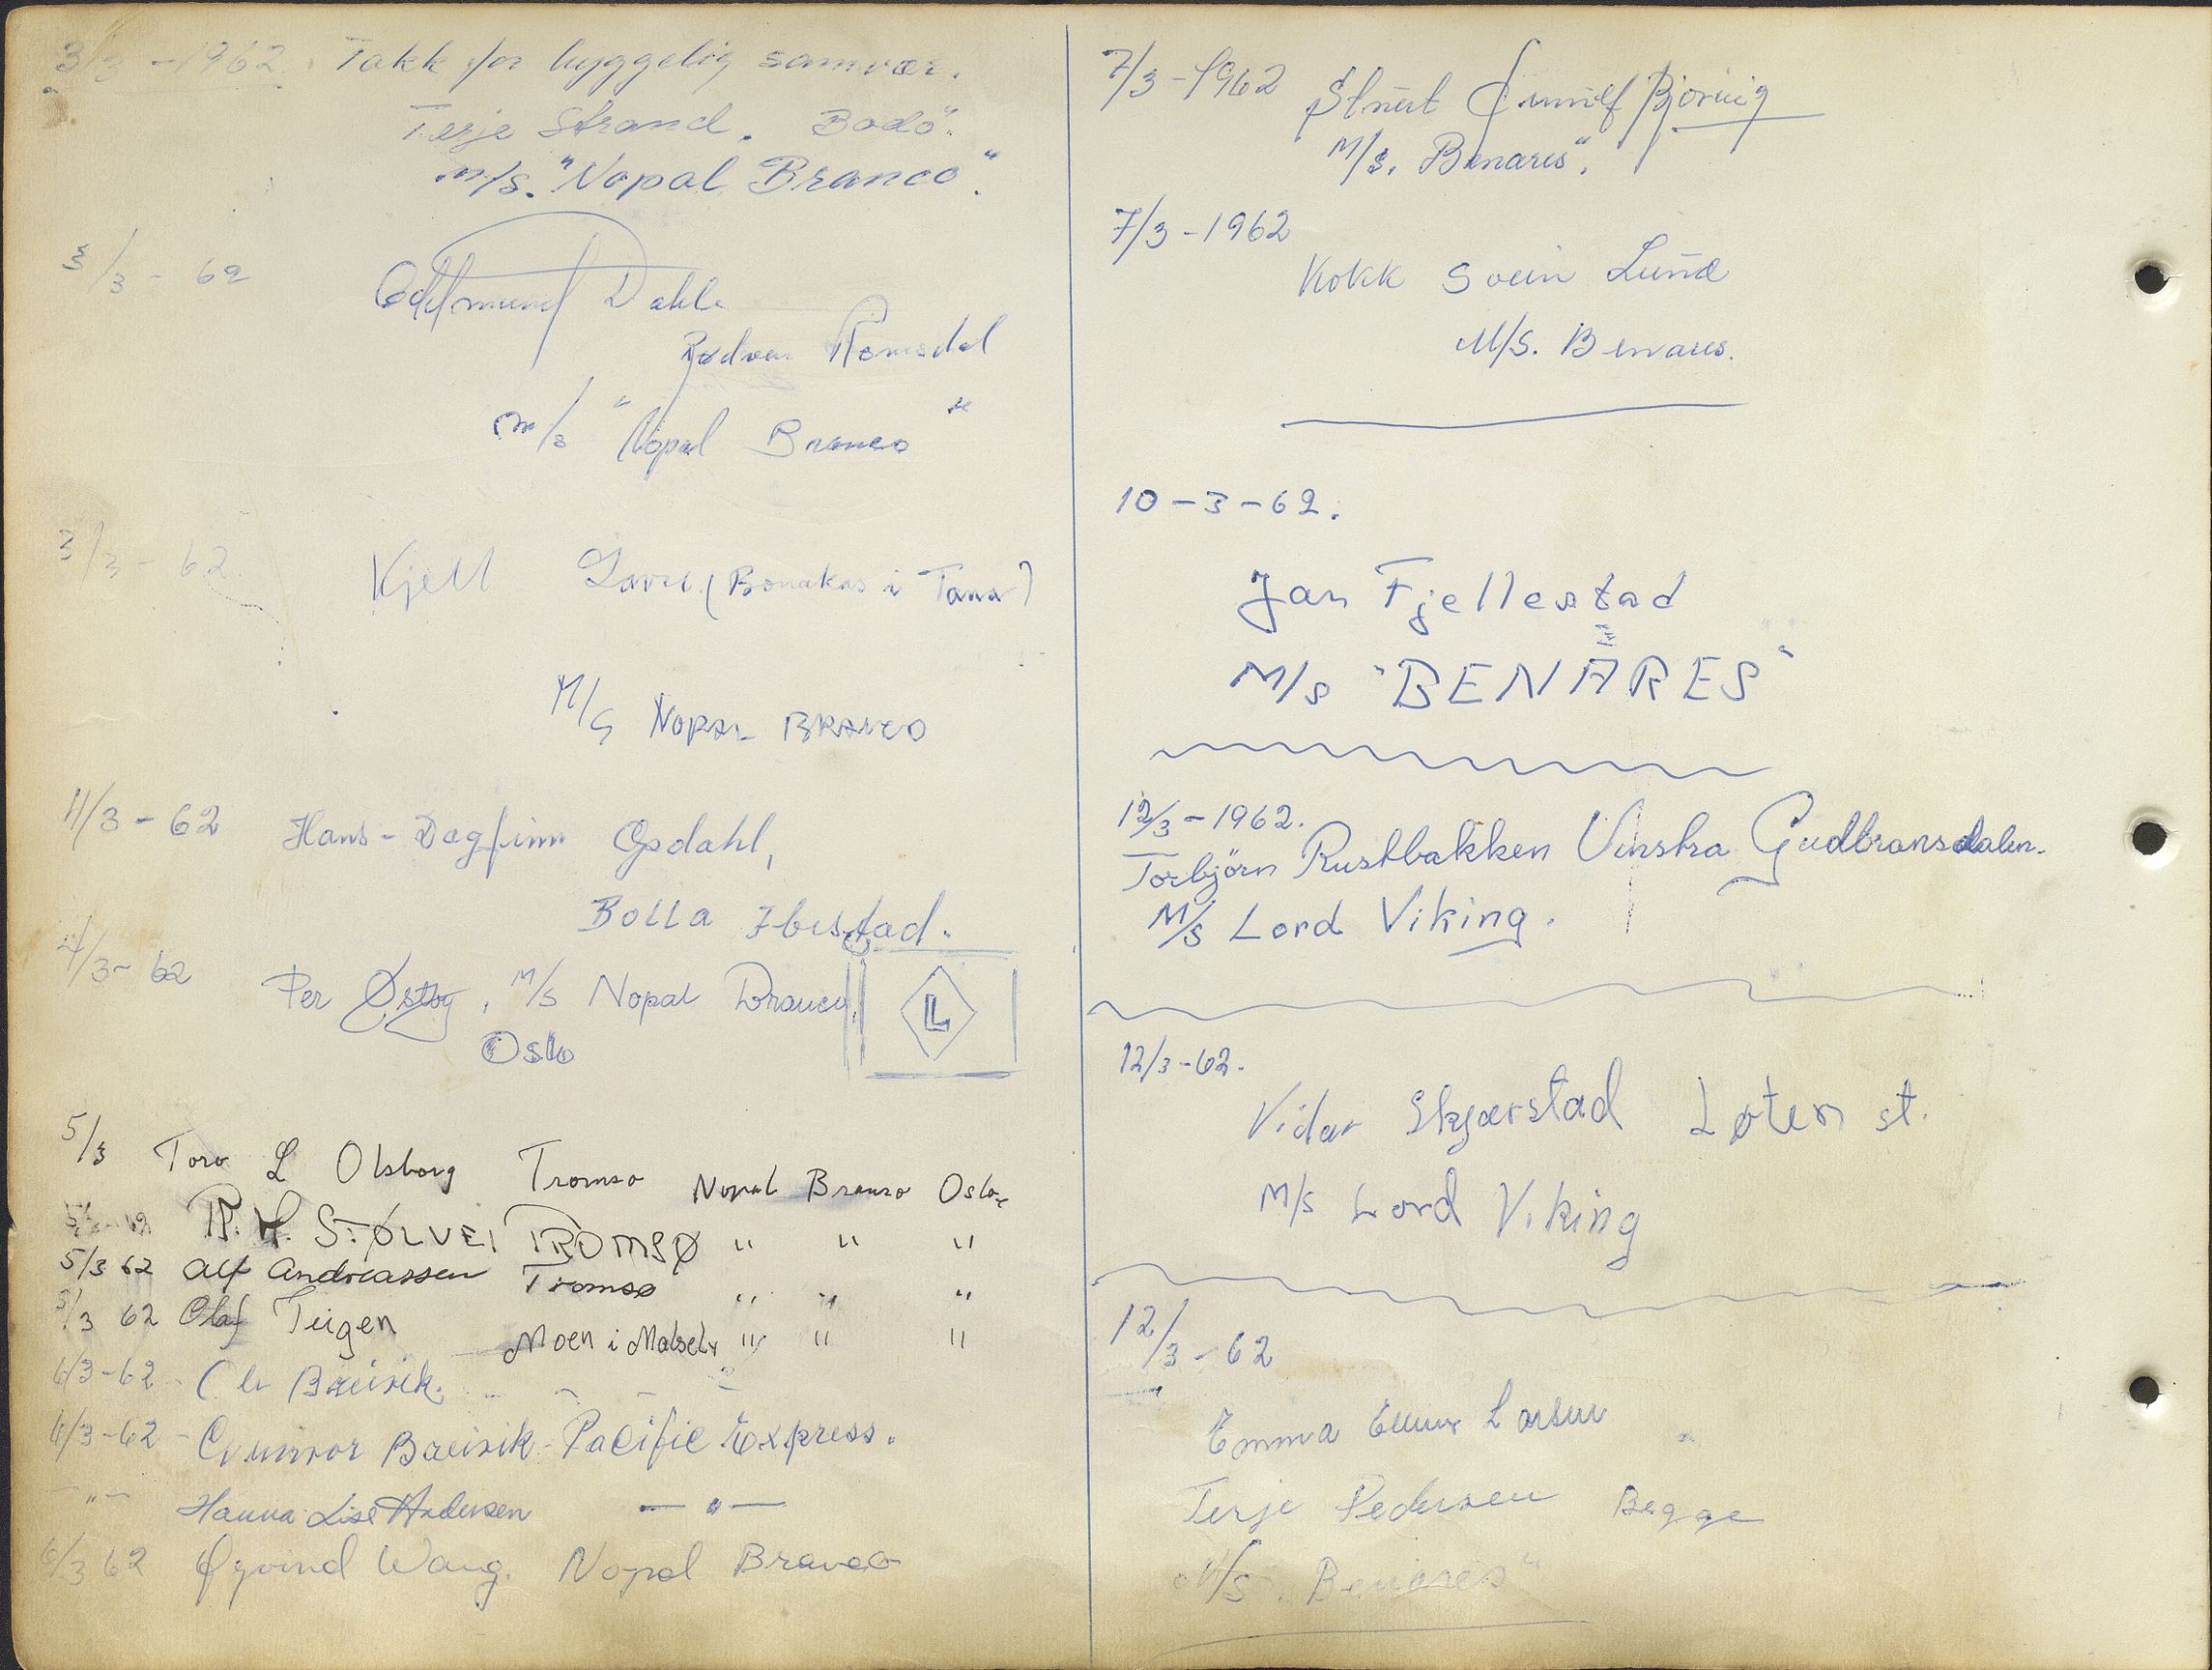 3/3 - 1962. Takk for hyggelig samvær.
Terje Strand. Bodö.
M/S. "Nopal Branco".
3/3 - 62
Oddmund Dahle
Rødven Romsdal
M/S "Nopal Branco"
3/3 - 62
Kjell (Bonakas i Tana)
M/S NOPAL BRANCO
4/3 - 62 Hans-Dagfinn Opdahl,
Bolla Ibestad.
4/3 - 62
Per M/S Nopal Branco
Oslo
L
5/3 Tore L Olsborg Tromsø Nopal Branco Oslo
R. H. STØLVEI TROMSØ " " "
5/3 62 Alf Andreassen Tromsø " " "
5/3 62 Olaf Teigen Moen i Målselv " " "
6/3-62 Breivik.
6/3-62 - Gunvor Breivik - Pacific Express.
- " - Hanna Lise Andersen - " -
6/3 62 Øyvind Wang. Nopal Branco
7/3 - 1962 Bjørvig
M/S. Benares".
7/3 - 1962
Kokk Svein Lund
M/S. Benares.
10 - 3 - 62.
Jan Fjellestad
M/S "BENARES"
12/3 - 1962.
Torbjörn Rustbakken Vinstra Gudbransdalen.
M/S Lord Viking.
12/3 - 62.
Vidar Skjærstad Løten st.
M/S Lord Viking
12/3 - 62
Emma Larsen
Terje Pedersen Begge
M/S. Benares"